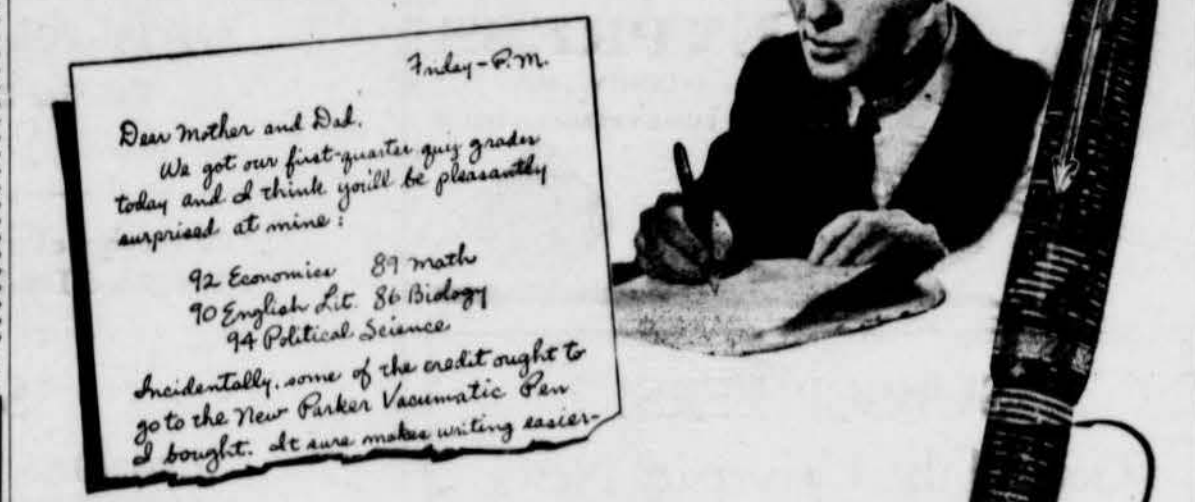 Friday - P.M.
Dear Mother and Dad,
We got our first-quarter quiz grades
today and I think you'll be pleasantly
surprised at mine:
92 Economics 89 Math
90 English Lit. 86 Biology
94 Political Science
Incidentally, some of the credit ought to
go to the New Parker Vacumatic Pen
I bought. It sure makes writing easier-